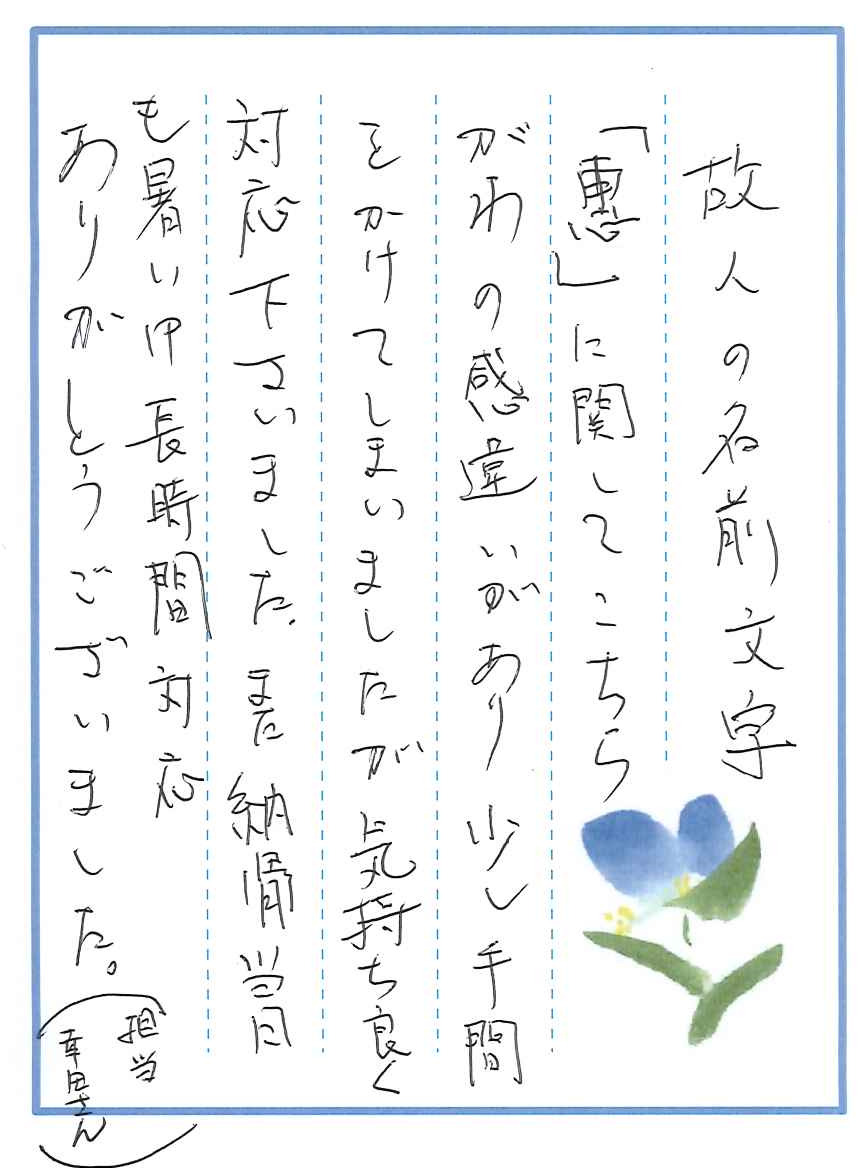 故人の名前文字
「恵」に関してこちら
がわの感違いがあり少し手間
をかけてしまいましたが気持ち良く
対応下さいました。また納骨当日
も暑い中長時間対応
ありがとうございました。
(担当
幸田さん)